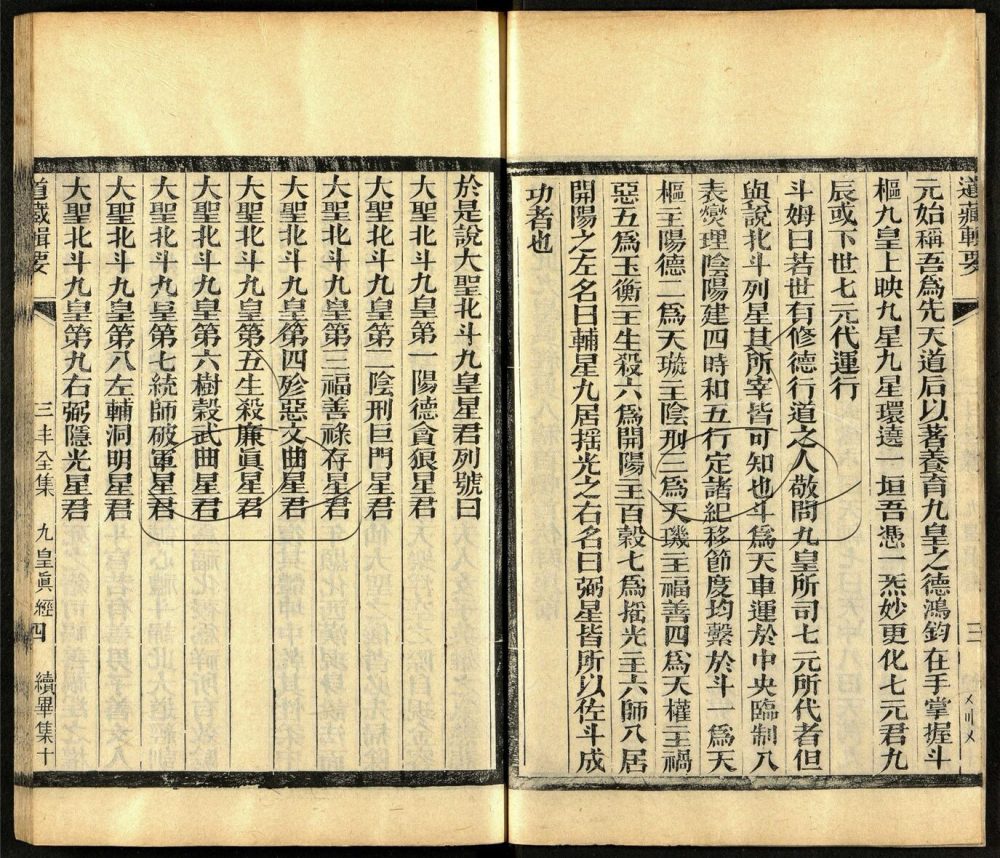 道藏輯要
三
元始稱吾爲先天道后以著養育九皇之德鴻鈞在手掌握斗
樞九皇上映九星九星環遶一垣吾憑一炁妙更化七元君九
辰或下世七元代運行
斗姆曰若世有修德行道之人敬問九皇所司七元所代者但
與說北斗列星其所宰皆可知也斗爲天車運於中央臨制八
表燮理陰陽建四時和五行定諸紀移節度均繫於斗一爲天
樞主陽德二爲天璇主陰刑三爲天璣主福善四爲天權主禍
惡五爲玉衡主生殺六爲開陽主百穀七爲搖光主六師八居
開陽之左名曰輔星九居搖光之右名曰弼星皆所以佐斗成
功者也
於是說大聖北斗九皇星君列號曰
大聖北斗九皇第一陽德貪狼星君
大聖北斗九皇第二陰刑巨門星君
大聖北斗九皇第三福善祿存星君
大聖北斗九皇第四殄惡文曲星君
大聖北斗九皇第五生殺廉眞星君
大聖北斗九皇第六樹穀武曲星君
大聖北斗九皇第七統師破軍星君
大聖北斗九皇第八左輔洞明星君
大聖北斗九皇第九右弼隱光星君
道藏輯要
三丰全集 九皇眞經 四 續畢集十